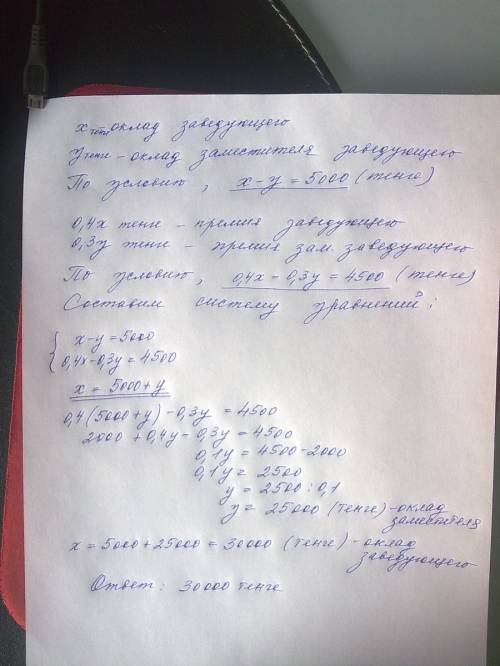 x тенге оклад заведующего
y тенге - оклад заместителя заведующего
По условию, x-y=5000 (тенге)
0,4x тенге - премия заведующего
0,3y тенге - премия зам. заведующего
По условию, 0,4x - 0,3y = 4500 (тенге)
Составим систему уравнений:
{ x-y=5000
0,4x-0,3y=4500
x = 5000+y
0,4(5000+y)-0,3y=4500
2000+0,4y-0,3y=4500
0,1y=4500-2000
0,1y=2500
y=2500:0,1
y=25000 (тенге)-оклад заместителя
x=5000+25000=30000 (тенге)-оклад заведующего
Ответ: 30000 тенге